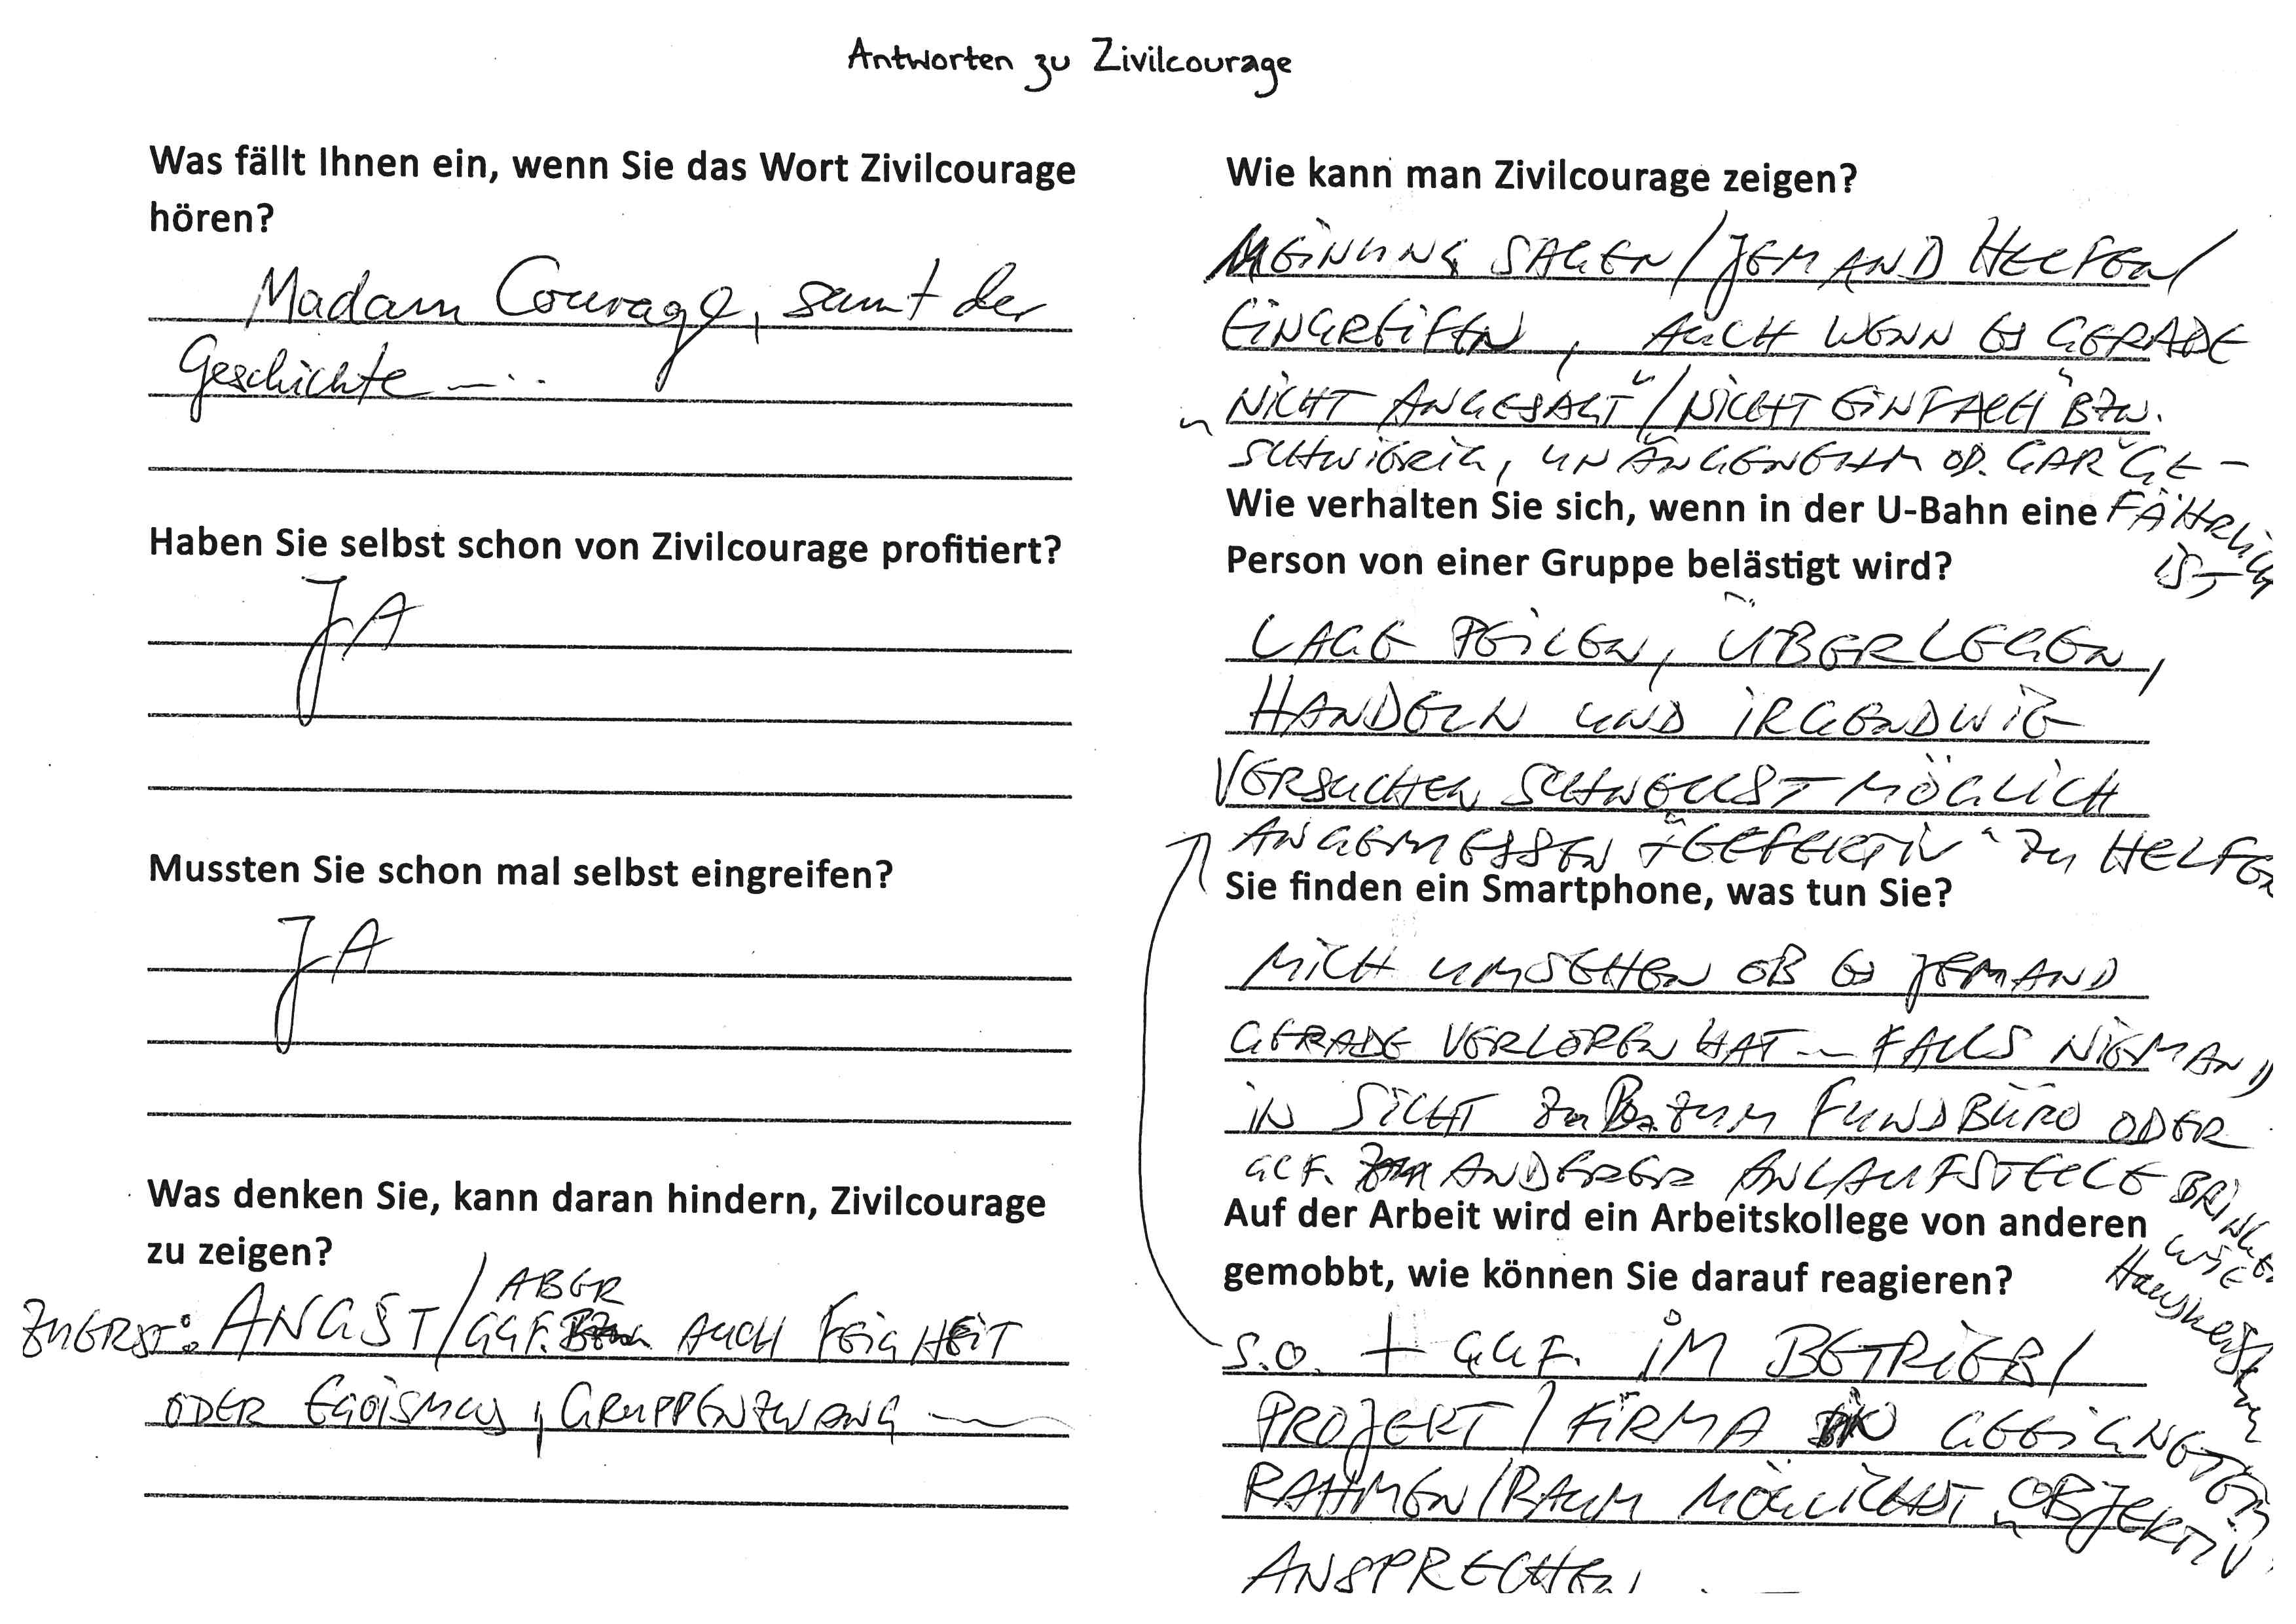 Antworten zu Zivilcourage
Was fällt Ihnen ein, wenn Sie das Wort Zivilcourage
hören?
Madam Courage, samt der
Geschichte — . .
Haben Sie selbst schon von Zivilcourage profitiert?
JA
Mussten Sie schon mal selbst eingreifen?
JA
Was denken Sie, kann daran hindern, Zivilcourage
zu zeigen?
ABER
ZUERST: ANGST/GGF. AUCH FEIGHEIT
ODER EGOISMUS, GRUPPENZWANG —
Wie kann man Zivilcourage zeigen?
MEINUNG SAGEN/JEMAND HELFEN/
EINGREIFEN, AUCH WENN ES GERADE
„NICHT ANGESAGT"/NICHT EINFACH BZW.
SCHWIERIG, UNANGENEHM OD. GAR GE-
FÄHRLICH
IST
Wie verhalten Sie sich, wenn in der U-Bahn eine
Person von einer Gruppe belästigt wird?
LAGE PEILEN, ÜBERLEGEN,
HANDELN UND IRGENDWIE
VERSUCHEN SCHNELLSTMÖGLICH
ANGEMESSEN + "EFFEKTIV" ZU HELFEN
Sie finden ein Smartphone, was tun Sie?
MICH UMSEHEN OB ES JEMAND
GERADE VERLOREN HAT — FALLS NIEMAND
IN SICHT ZUM FUNDBÜRO ODER
GGF. ANDERER ANLAUFSTELLE BRINGEN
WIE
Hausmeister
Auf der Arbeit wird ein Arbeitskollege von anderen
gemobbt, wie können Sie darauf reagieren?
S.O. + GGF. IM BETRIEB/
PROJEKT/FIRMA IN GEEIGNETEM
RAHMEN/RAUM MÖGLICHST „OBJEKTIV"
ANSPRECHEN